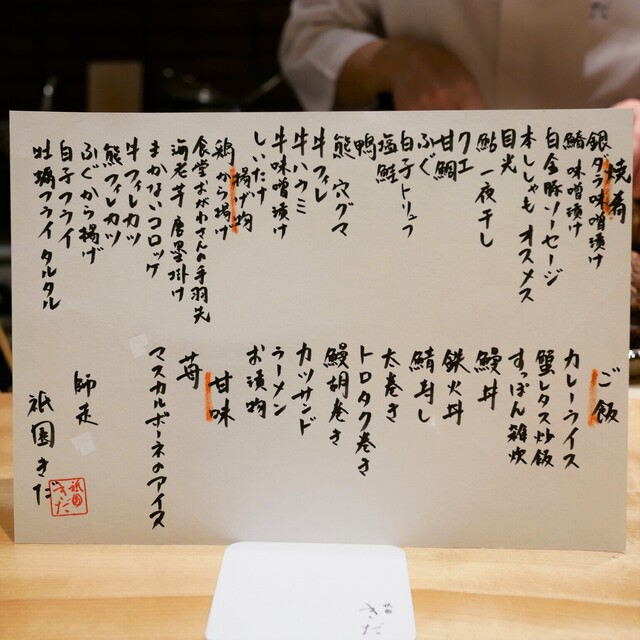 焼肴
銀ダラ味噌漬け
鰆 味噌漬け
白金豚ソーセージ
本ししゃも オススメ
目光
鮎 一夜干し
クエ
甘鯛
ふぐ
白子トリュフ
塩鮭
鴨
熊 穴グマ
牛フィレ
牛ハラミ
牛味噌漬け
しいたけ
揚げ物
鶏から揚げ
食堂おがわさんの手羽先
海老芋 唐墨掛け
まかないコロッケ
牛フィレカツ
熊フィレカツ
ふぐから揚げ
白子フライ
牡蠣フライタルタル
ご飯
カレーライス
蟹レタス炒飯
すっぽん雑炊
鰻丼
鉄火丼
鯖寿し
太巻き
トロタク巻き
鰻胡巻き
カツサンド
ラーメン
お漬物
甘味
苺
マスカルポーネのアイス
師走
祇園きだ
祇園
きだ
祇園
きだ